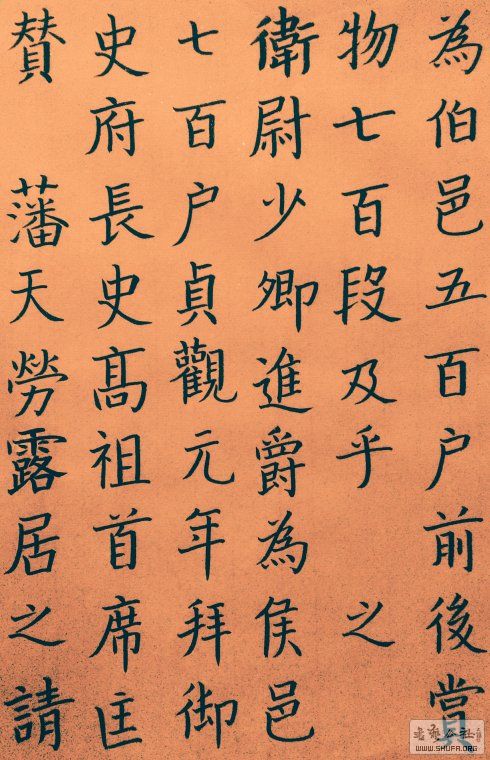 為伯邑五百户前後賞
物七百段及乎 之
衛尉少卿進爵為侯邑
七百户貞觀元年拜御
史府長史髙祖首席匡
賛 藩天勞露居之請
WWW.SHUFA.ORG